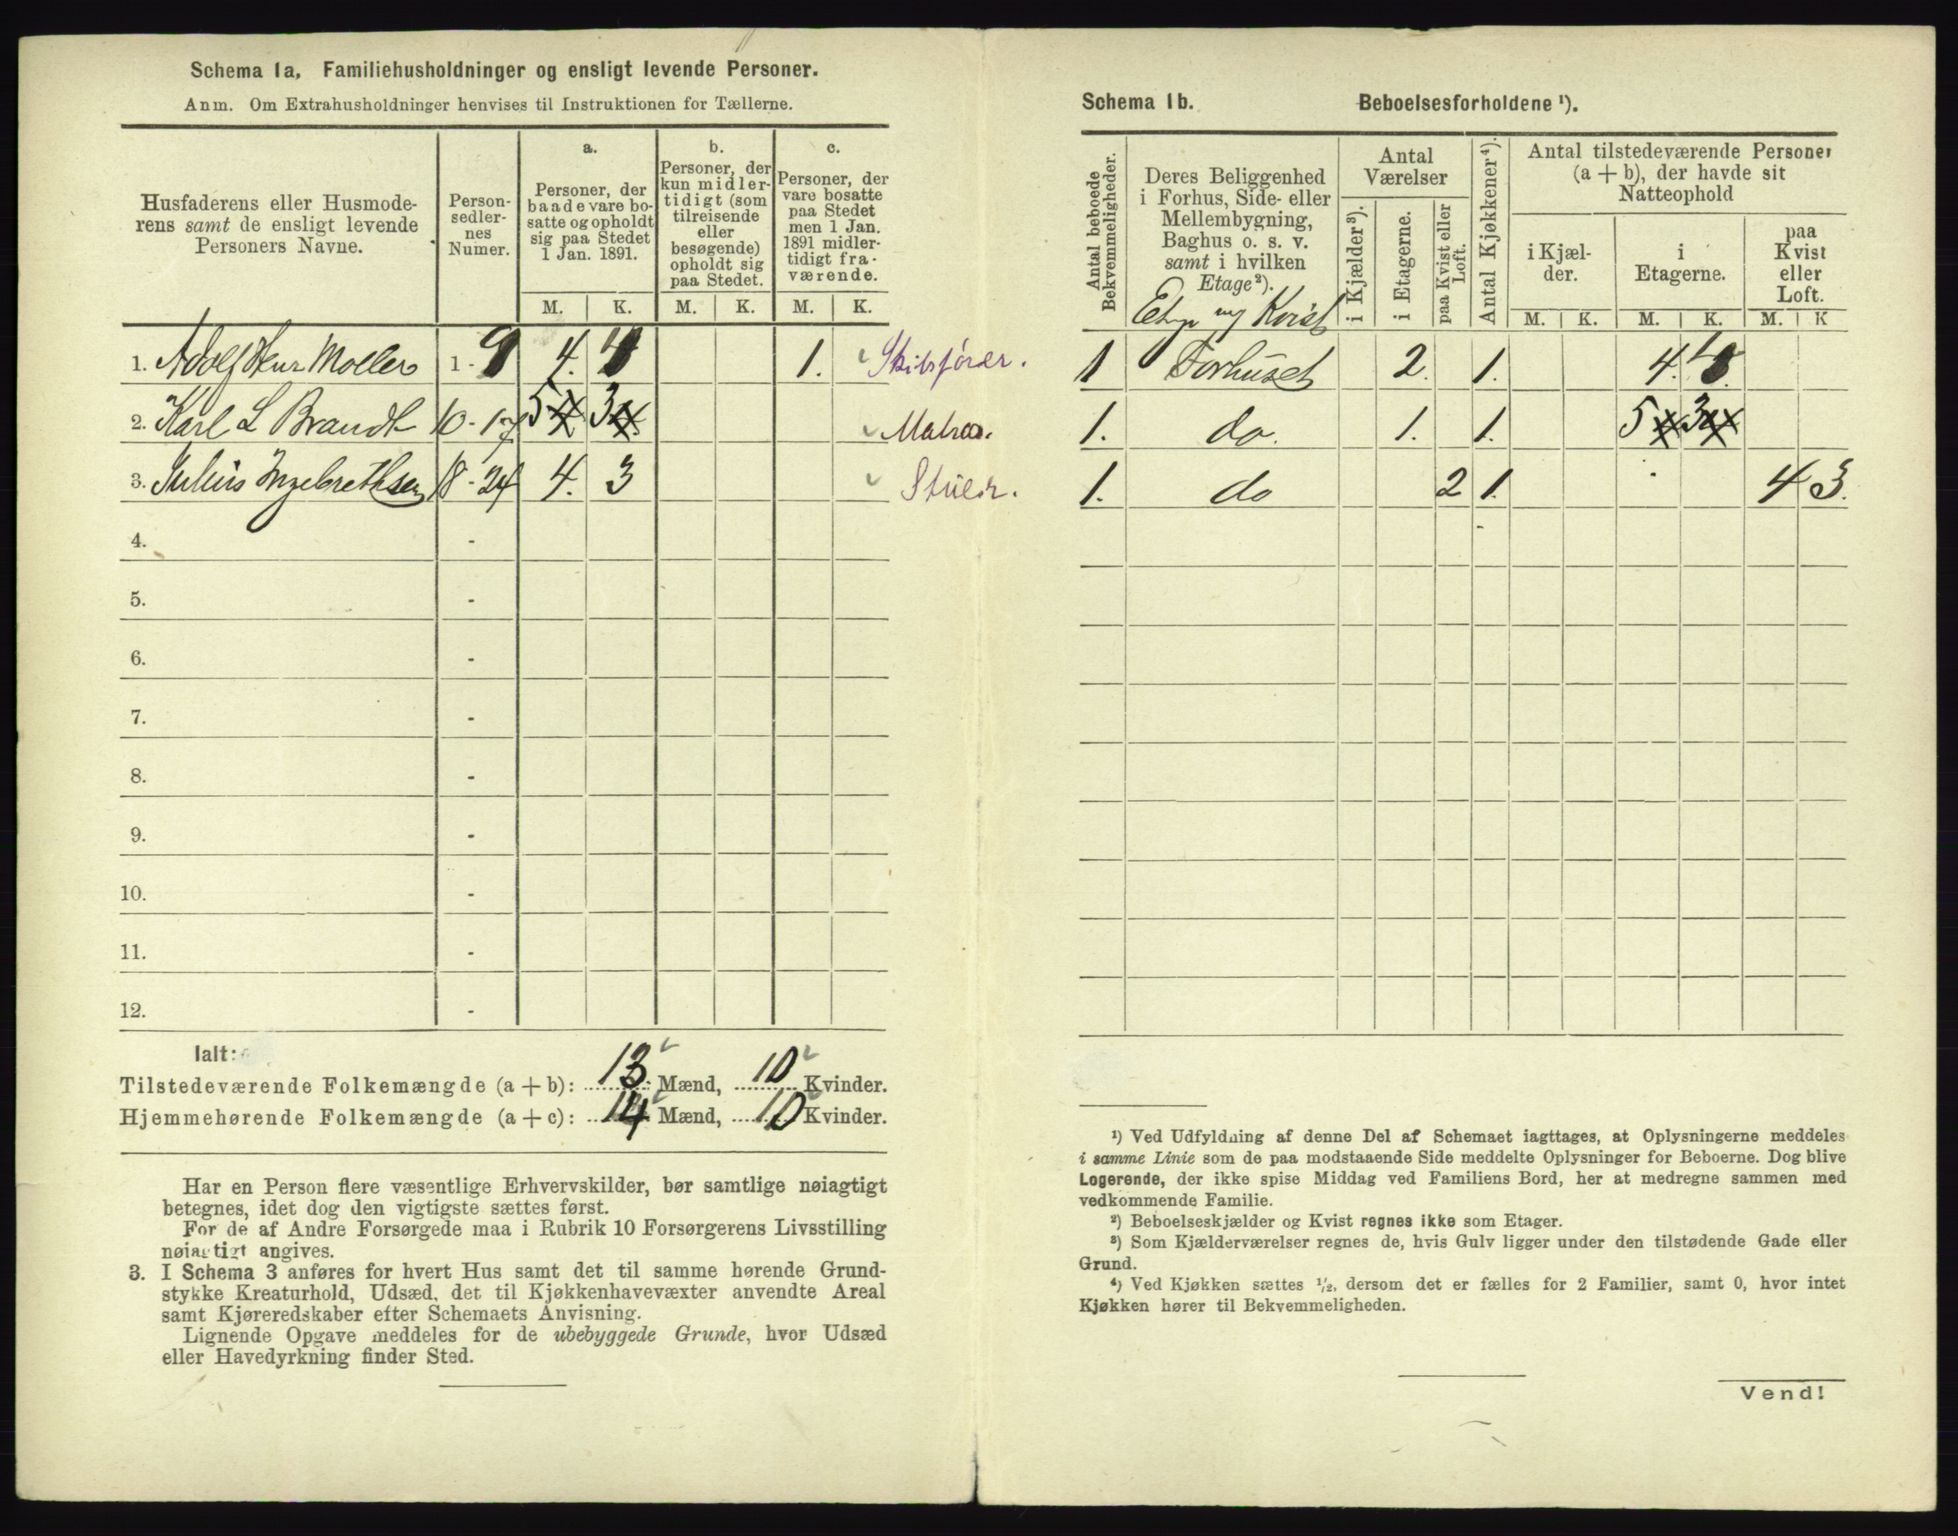 Schema 1a, Familiehusholdninger og ensligt levende Personer.
Anm. Om Extrahusholdninger henvises til Instruktionen for Tællerne.
Husfaderens eller Husmoderens samt de ensligt levende Personers Navne.
Personsedlernes Numer.
a.
Personer, der baade vare bosatte og opholdt sig paa Stedet 1 Jan. 1891.
b.
Personer, der kun midlertidigt (som tilreisende eller besøgende) opholdt sig paa Stedet.
c.
Personer, der vare bosatte paa Stedet men 1 Jan. 1891 midlertidigt fraværende.
M. K. M. K. M. K.
1. Adolf Hur Moller 1 - 9 4. 4 1. Skibsfører.
2. Karl L Brandt 10 - 17 5 3 Matros.
3. Julius Ingebrethsen 18 - 24 4. 3 Stuer.
4. -
5. -
6. -
7. -
8. -
9. -
10. -
11. -
12. -
Ialt:
Tilstedeværende Folkemængde (a + b): 13 Mænd, 10 Kvinder.
Hjemmehørende Folkemængde (a + c): 14 Mænd, 10 Kvinder.
Har en Person flere væsentlige Erhvervskilder, bør samtlige nøiagtigt
betegnes, idet dog den vigtigste sættes først.
For de af Andre Forsørgede maa i Rubrik 10 Forsørgerens Livsstilling
nøiagtigt angives.
3. I Schema 3 anføres for hvert Hus samt det til samme hørende Grund-
stykke Kreaturhold, Udsæd, det til Kjøkkenhavevæxter anvendte Areal
samt Kjøreredskaber efter Schemaets Anvisning.
Lignende Opgave meddeles for de ubebyggede Grunde, hvor Udsæd
eller Havedyrkning finder Sted.
Schema 1b. Beboelsesforholdene ¹).
Antal beboede Bekvemmeligheder.
Deres Beliggenhed i Forhus, Side- eller Mellembygning, Baghus o. s. v. samt i hvilken Etage²).
Etage og Kvist
Antal Værelser
i Kjælder³).
i Etagerne.
paa Kvist eller Loft.
Antal Kjøkkener⁴).
Antal tilstedeværende Personer (a + b), der havde sit Natteophold
i Kjælder.
i Etagerne.
paa Kvist eller Loft.
M. K. M. K. M. K
1 Forhuset 2. 1. 4. 4
1. do. 1. 1. 5 3
1. do 2 1. 4 3.
¹) Ved Udfyldning af denne Del af Schemaet iagttages, at Oplysningerne meddeles
i samme Linie som de paa modstaaende Side meddelte Oplysninger for Beboerne. Dog blive
Logerende, der ikke spise Middag ved Familiens Bord, her at medregne sammen med
vedkommende Familie.
²) Beboelseskjælder og Kvist regnes ikke som Etager.
³) Som Kjælderværelser regnes de, hvis Gulv ligger under den tilstødende Gade eller
Grund.
⁴) Ved Kjøkken sættes ¹/₂, dersom det er fælles for 2 Familier, samt 0, hvor intet
Kjøkken hører til Bekvemmeligheden.
Vend!